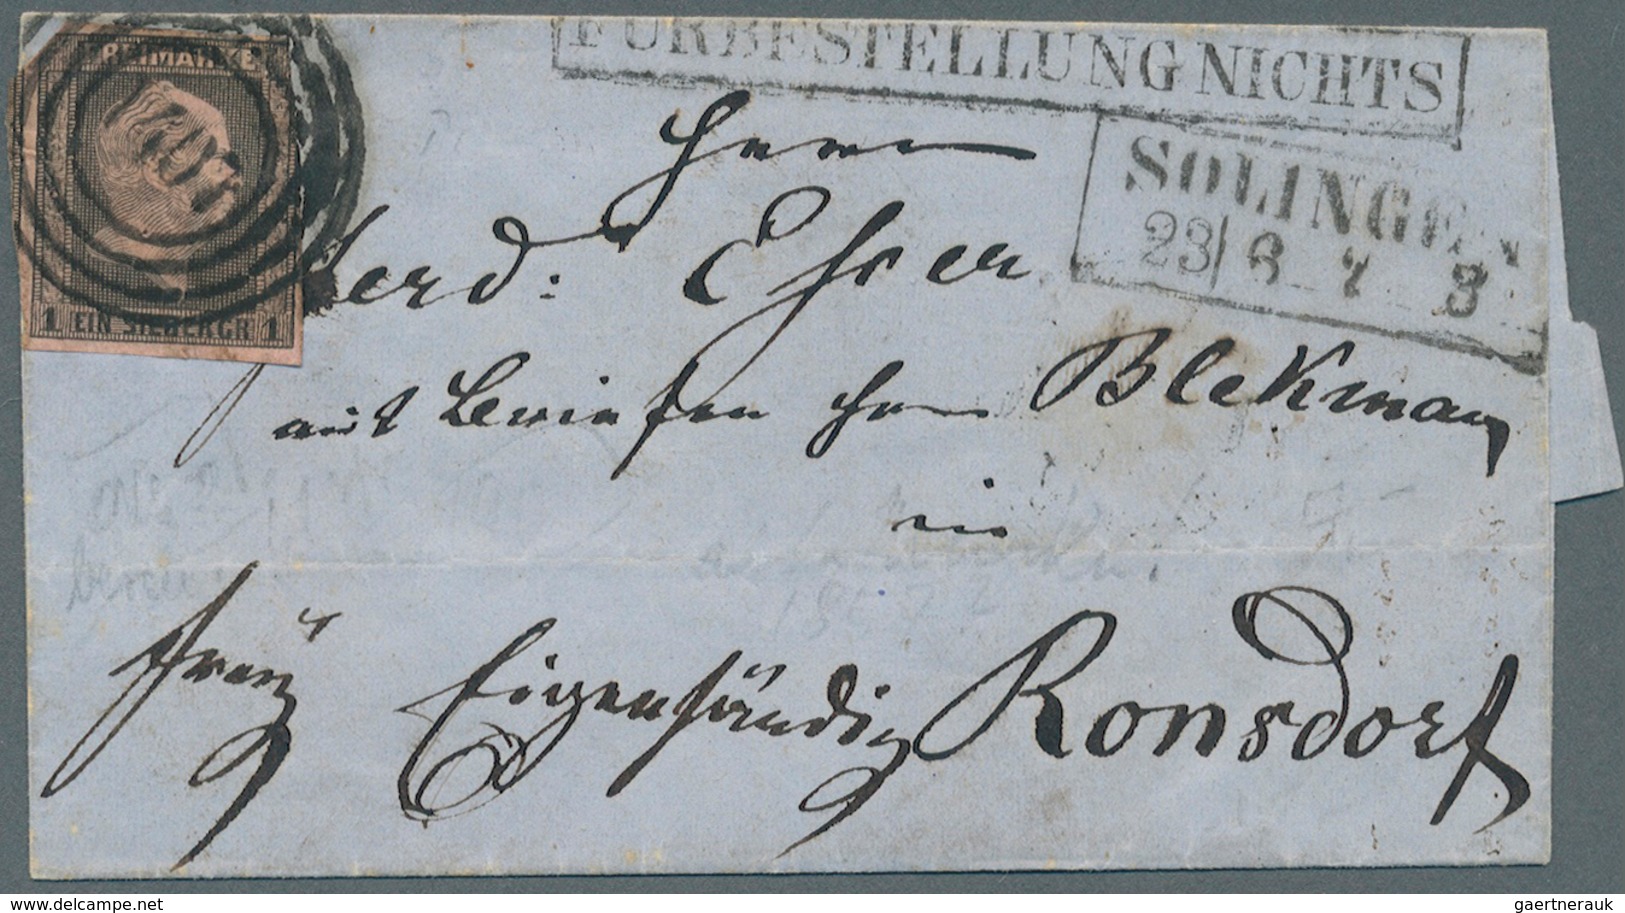 FÜR BESTELLUNG NICHTS
FREIMARKE
SOLINGEN
23/6 7 - 8
1 EIN SILBERGR 1
Herrn
Ferd: Ehser
mit Briefen Herrn Blekmann
in
Ronsdorf
franz Eigenhändig
delcampe.net
gaertnerauk